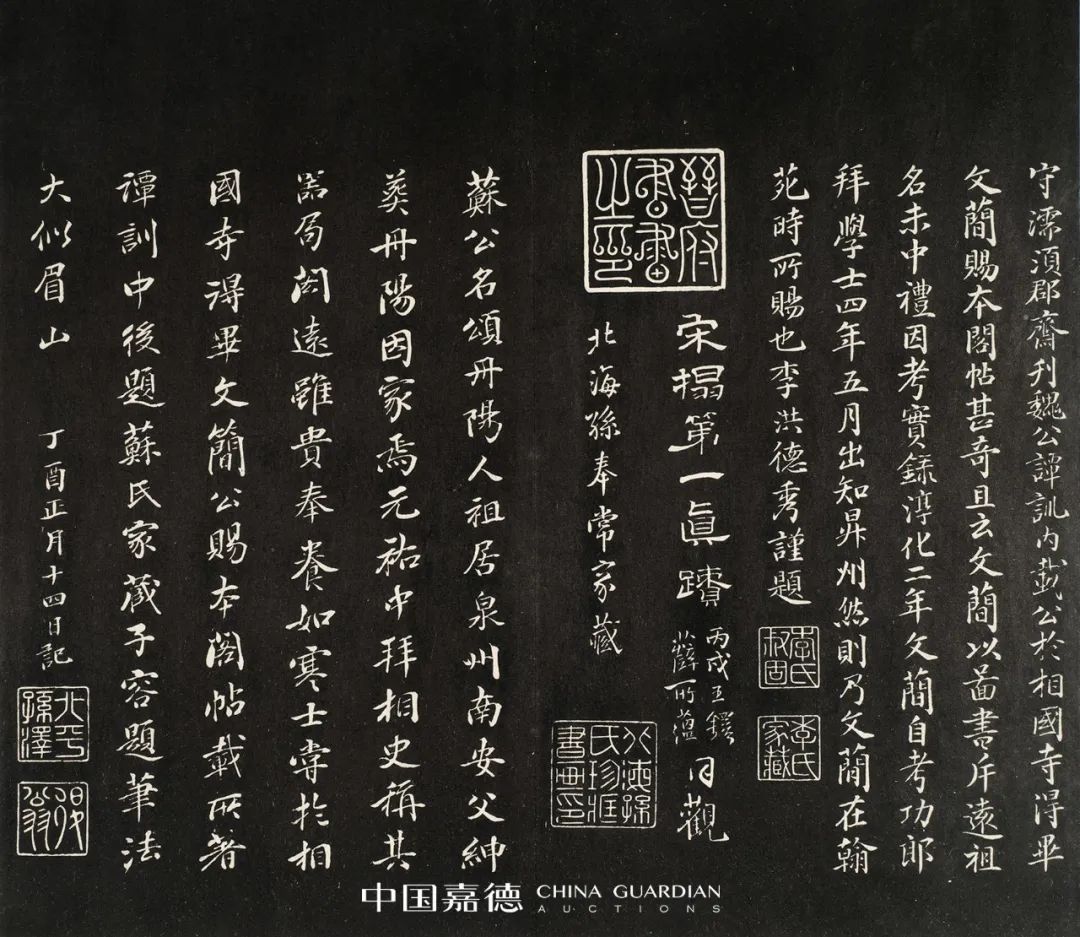 守濡須郡齋刊魏公譚訓內載公於相國寺得畢
文簡賜本閣帖甚奇且云文簡以圖書斥遠祖
名未中禮因考實錄淳化二年文簡自考功郎
拜學士四年五月出知昇州然則乃文簡在翰
苑時所賜也李洪德秀謹題
李氏叔固
李氏家藏
晉府書畫之印
宋搨第一真蹟
丙戌王鐸
薛所蘊
同觀
北海孫奉常家藏
北海孫氏珍藏書畫印
蘇公名頌丹陽人祖居泉州南安父紳
葬丹陽因家焉元祐中拜相史稱其
器局閎遠雖貴奉養如寒士嘗於相
國寺得畢文簡公賜本閣帖載所著
譚訓中後題蘇氏家藏子容題筆法
大似眉山
丁酉正月十四日記
北平孫澤
中国嘉德 CHINA GUARDIAN
AUCTIONS